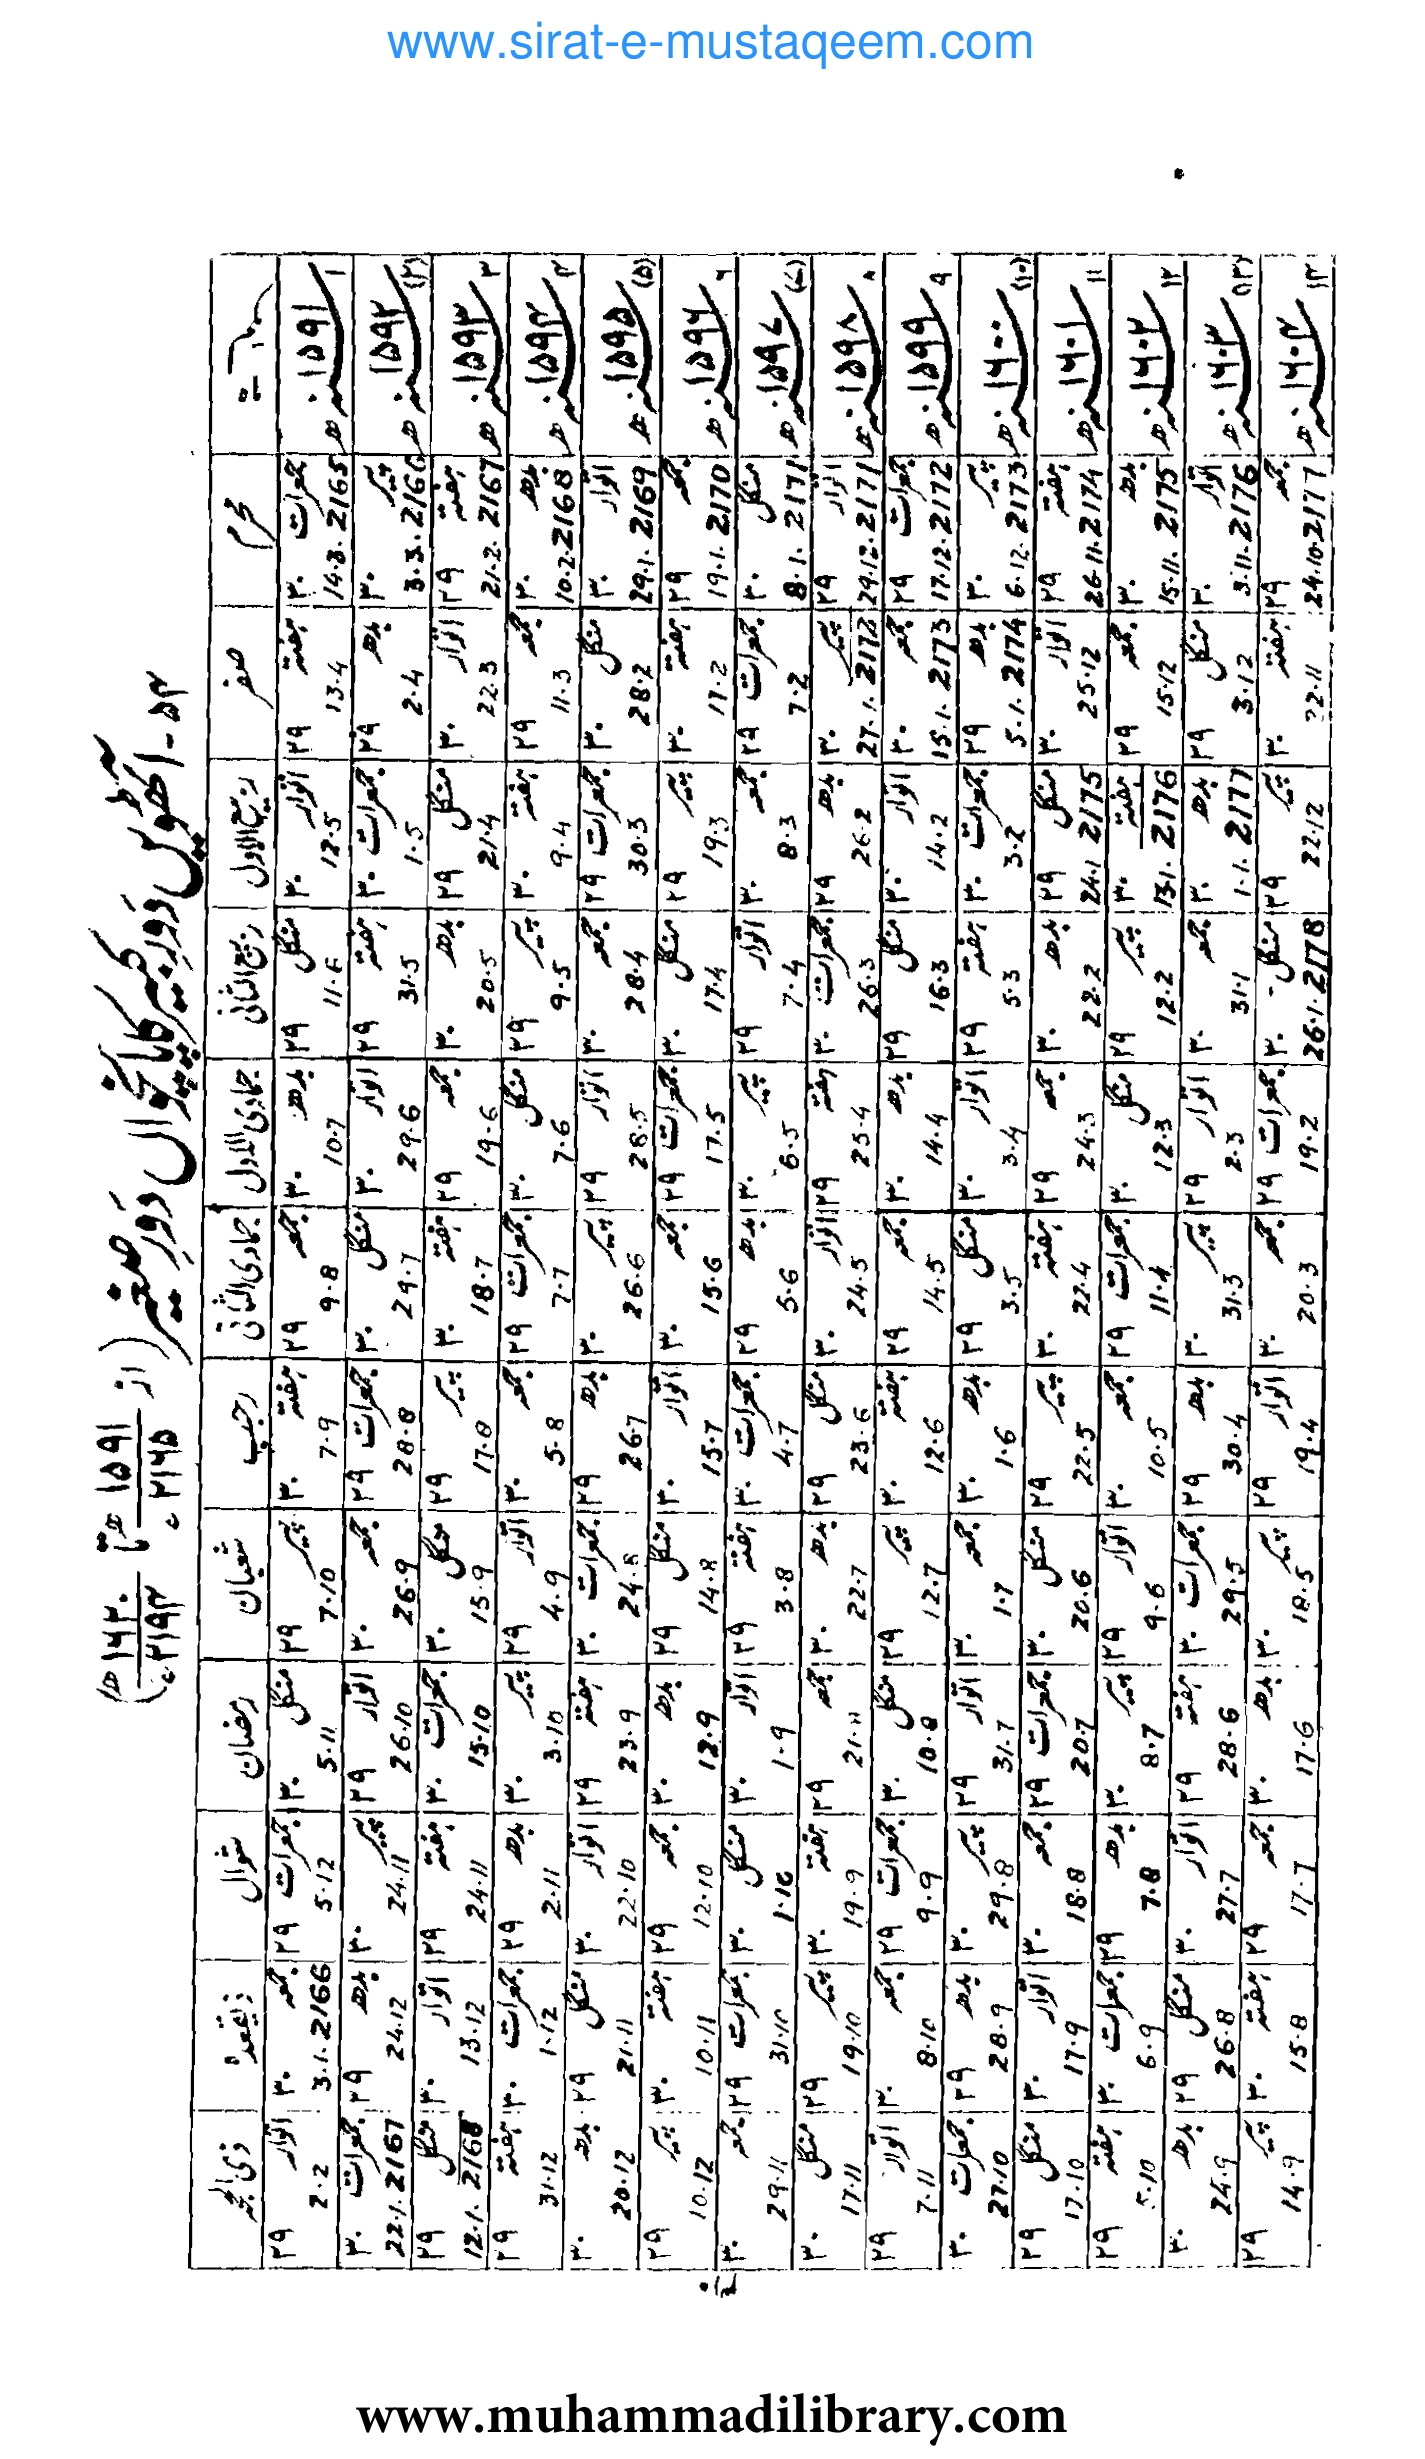 www.sirat-e-mustaqeem.com
۵۴ - آٹھویں دورِ کبیر کا آٹھواں دورِ صغیر (از ۱۵۹۱ھ / ۲۱۶۵ء تا ۱۶۲۰ھ / ۲۱۹۴ء)
محرم صفر ربیع الاول ربیع الثانی جمادی الاول جمادی الثانی رجب شعبان رمضان شوال ذیقعدہ ذی الحجہ
۱ ۱۵۹۱ سنہ ھ جمعرات ۳۰ 14.3.2165 ہفتہ ۲۹ 13.4 اتوار ۳۰ 12.5 منگل ۲۹ 11.6 بدھ ۳۰ 10.7 جمعہ ۲۹ 9.8 ہفتہ ۳۰ 7.9 پیر ۲۹ 7.10 منگل ۳۰ 5.11 جمعرات ۲۹ 5.12 جمعہ ۳۰ 3.1.2166 اتوار ۲۹ 2.2
(۲) ۱۵۹۲ سنہ ھ پیر ۳۰ 3.3.2166 بدھ ۲۹ 2.4 جمعرات ۳۰ 1.5 ہفتہ ۲۹ 31.5 اتوار ۳۰ 29.6 منگل ۳۰ 29.7 جمعرات ۲۹ 28.8 جمعہ ۳۰ 26.9 اتوار ۲۹ 26.10 پیر ۳۰ 24.11 بدھ ۲۹ 24.12 جمعرات ۳۰ 22.1.2167
۳ ۱۵۹۳ سنہ ھ ہفتہ ۲۹ 21.2.2167 اتوار ۳۰ 22.3 منگل ۲۹ 21.4 بدھ ۳۰ 20.5 جمعہ ۲۹ 19.6 ہفتہ ۳۰ 18.7 پیر ۲۹ 17.8 منگل ۳۰ 15.9 جمعرات ۳۰ 15.10 ہفتہ ۲۹ 24.11 اتوار ۳۰ 13.12 منگل ۲۹ 12.1.2168
۴ ۱۵۹۴ سنہ ھ بدھ ۳۰ 10.2.2168 جمعہ ۲۹ 11.3 ہفتہ ۳۰ 9.4 پیر ۲۹ 9.5 منگل ۳۰ 7.6 جمعرات ۲۹ 7.7 جمعہ ۳۰ 5.8 اتوار ۲۹ 4.9 پیر ۳۰ 3.10 بدھ ۲۹ 2.11 جمعرات ۳۰ 1.12 ہفتہ ۲۹ 31.12
(۵) ۱۵۹۵ سنہ ھ اتوار ۳۰ 29.1.2169 منگل ۳۰ 28.2 جمعرات ۲۹ 30.3 جمعہ ۳۰ 28.4 اتوار ۲۹ 28.5 پیر ۳۰ 26.6 بدھ ۲۹ 26.7 جمعرات ۳۰ 24.8 ہفتہ ۲۹ 23.9 اتوار ۳۰ 22.10 منگل ۲۹ 21.11 بدھ ۳۰ 20.12
۶ ۱۵۹۶ سنہ ھ جمعہ ۲۹ 19.1.2170 ہفتہ ۳۰ 17.2 پیر ۲۹ 19.3 منگل ۳۰ 17.4 جمعرات ۲۹ 17.5 جمعہ ۳۰ 15.6 اتوار ۳۰ 15.7 منگل ۲۹ 14.8 بدھ ۳۰ 12.9 جمعہ ۲۹ 12.10 ہفتہ ۳۰ 10.11 پیر ۲۹ 10.12
(۷) ۱۵۹۷ سنہ ھ منگل ۳۰ 8.1.2171 جمعرات ۲۹ 7.2 جمعہ ۳۰ 8.3 اتوار ۲۹ 7.4 پیر ۳۰ 6.5 بدھ ۲۹ 5.6 جمعرات ۳۰ 4.7 ہفتہ ۲۹ 3.8 اتوار ۳۰ 1.9 منگل ۳۰ 1.10 جمعرات ۲۹ 31.10 جمعہ ۳۰ 29.11
۸ ۱۵۹۸ سنہ ھ اتوار ۲۹ 29.12.2171 پیر ۳۰ 27.1.2172 بدھ ۲۹ 26.2 جمعرات ۳۰ 26.3 ہفتہ ۲۹ 25.4 اتوار ۳۰ 24.5 منگل ۲۹ 23.6 بدھ ۳۰ 22.7 جمعہ ۲۹ 21.8 ہفتہ ۳۰ 19.9 پیر ۲۹ 19.10 منگل ۳۰ 17.11
۹ ۱۵۹۹ سنہ ھ جمعرات ۲۹ 17.12.2172 جمعہ ۳۰ 15.1.2173 اتوار ۳۰ 14.2 منگل ۲۹ 16.3 بدھ ۳۰ 14.4 جمعہ ۲۹ 14.5 ہفتہ ۳۰ 12.6 پیر ۲۹ 12.7 منگل ۳۰ 10.8 جمعرات ۲۹ 9.9 جمعہ ۳۰ 8.10 اتوار ۲۹ 7.11
(۱۰) ۱۶۰۰ سنہ ھ پیر ۳۰ 6.12.2173 بدھ ۲۹ 5.1.2174 جمعرات ۳۰ 3.2 ہفتہ ۲۹ 5.3 اتوار ۳۰ 3.4 منگل ۲۹ 3.5 بدھ ۳۰ 1.6 جمعہ ۳۰ 1.7 اتوار ۲۹ 31.7 پیر ۳۰ 29.8 بدھ ۲۹ 28.9 جمعرات ۳۰ 27.10
۱۱ ۱۶۰۱ سنہ ھ ہفتہ ۲۹ 26.11.2174 اتوار ۳۰ 25.12 منگل ۲۹ 24.1.2175 بدھ ۳۰ 22.2 جمعہ ۲۹ 24.3 ہفتہ ۳۰ 22.4 پیر ۲۹ 22.5 منگل ۳۰ 20.6 جمعرات ۲۹ 20.7 جمعہ ۳۰ 18.8 اتوار ۳۰ 17.9 منگل ۲۹ 17.10
۱۲ ۱۶۰۲ سنہ ھ بدھ ۳۰ 15.11.2175 جمعہ ۲۹ 15.12 ہفتہ ۳۰ 13.1.2176 پیر ۲۹ 12.2 منگل ۳۰ 12.3 جمعرات ۲۹ 11.4 جمعہ ۳۰ 10.5 اتوار ۲۹ 9.6 پیر ۳۰ 8.7 بدھ ۲۹ 7.8 جمعرات ۳۰ 6.9 ہفتہ ۲۹ 5.10
(۱۳) ۱۶۰۳ سنہ ھ اتوار ۳۰ 3.11.2176 منگل ۲۹ 3.12 بدھ ۳۰ 1.1.2177 جمعہ ۳۰ 31.1 اتوار ۲۹ 2.3 پیر ۳۰ 31.3 بدھ ۲۹ 30.4 جمعرات ۳۰ 29.5 ہفتہ ۲۹ 28.6 اتوار ۳۰ 27.7 منگل ۲۹ 26.8 بدھ ۳۰ 24.9
۱۴ ۱۶۰۴ سنہ ھ جمعہ ۲۹ 24.10.2177 ہفتہ ۳۰ 22.11 پیر ۲۹ 22.12 منگل ۳۰ 26.1.2178 جمعرات ۲۹ 19.2 جمعہ ۳۰ 20.3 اتوار ۲۹ 19.4 پیر ۳۰ 18.5 بدھ ۳۰ 17.6 جمعہ ۲۹ 17.7 ہفتہ ۳۰ 15.8 پیر ۲۹ 14.9
www.muhammadilibrary.com